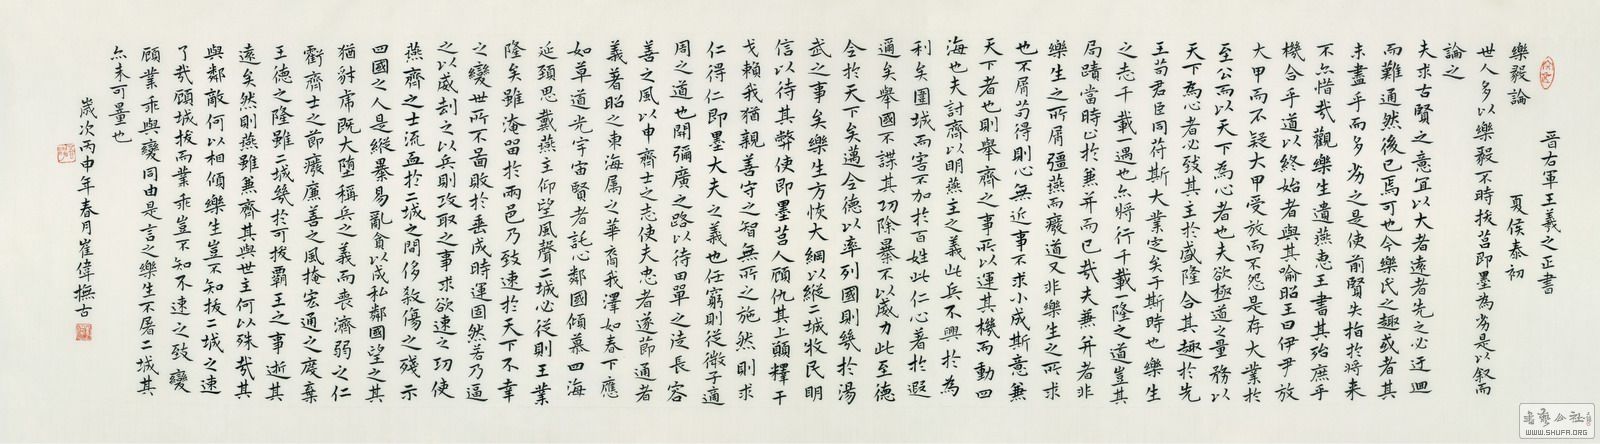 晉右軍王羲之正書
樂毅論 夏侯泰初
世人多以樂毅不時拔莒即墨為劣是以叙而
論之
夫求古賢之意宜以大者遠者先之必迂迴
而難通然後已焉可也今樂氏之趣或者其
未盡乎而多劣之是使前賢失指於將来
不亦惜哉觀樂生遺燕惠王書其殆庶乎
機合乎道以終始者與其喻昭王曰伊尹放
大甲而不疑大甲受放而不怨是存大業於
至公而以天下為心者也夫欲極道之量務以
天下為心者必致其主於盛隆合其趣於先
王苟君臣同符斯大業定矣于斯時也樂生
之志千載一遇也亦將行千載一隆之道豈其
局蹟當時止於兼并而已哉夫兼并者非
樂生之所屑彊燕而廢道又非樂生之所求
也不屑苟得則心無近事不求小成斯意兼
天下者也則舉齊之事所以運其機而動四
海也夫討齊以明燕主之義此兵不興於為
利矣圍城而害不加於百姓此仁心著於遐
邇矣舉國不謀其功除暴不以威力此至德
令於天下矣邁令德以率列國則幾於湯
武之事矣樂生方恢大綱以縱二城牧民明
信以待其弊使即墨莒人顧仇其上願釋干
戈賴我猶親善守之智無所之施然則求
仁得仁即墨大夫之義也任窮則從微子適
周之道也開彌廣之路以待田單之徒長容
善之風以申齊士之志使夫忠者遂節通者
義著昭之東海属之華裔我澤如春下應
如草道光宇宙賢者託心鄰國傾慕四海
延頸思戴燕主仰望風聲二城必從則王業
隆矣雖淹留於兩邑乃致速於天下不幸
之變世所不啚敗於垂成時運固然若乃逼
之以威劫之以兵則攻取之事求欲速之功使
燕齊之士流血於二城之間侈殺傷之殘示
四國之人是縱暴易亂貪以成私鄰國望之其
猶豺虎既大堕稱兵之義而喪濟弱之仁
虧齊士之節廢廉善之風掩宏通之度棄
王德之隆雖二城幾於可拔霸王之事逝其
遠矣然則燕雖兼齊其與世主何以殊哉其
與鄰敵何以相傾樂生豈不知拔二城之速
了哉顧城拔而業乖豈不知不速之致變
顧業乖與變同由是言之樂生不屠二城其
亦未可量也
歲次丙申年春月崔偉撫古
WWW.SHUFA.ORG